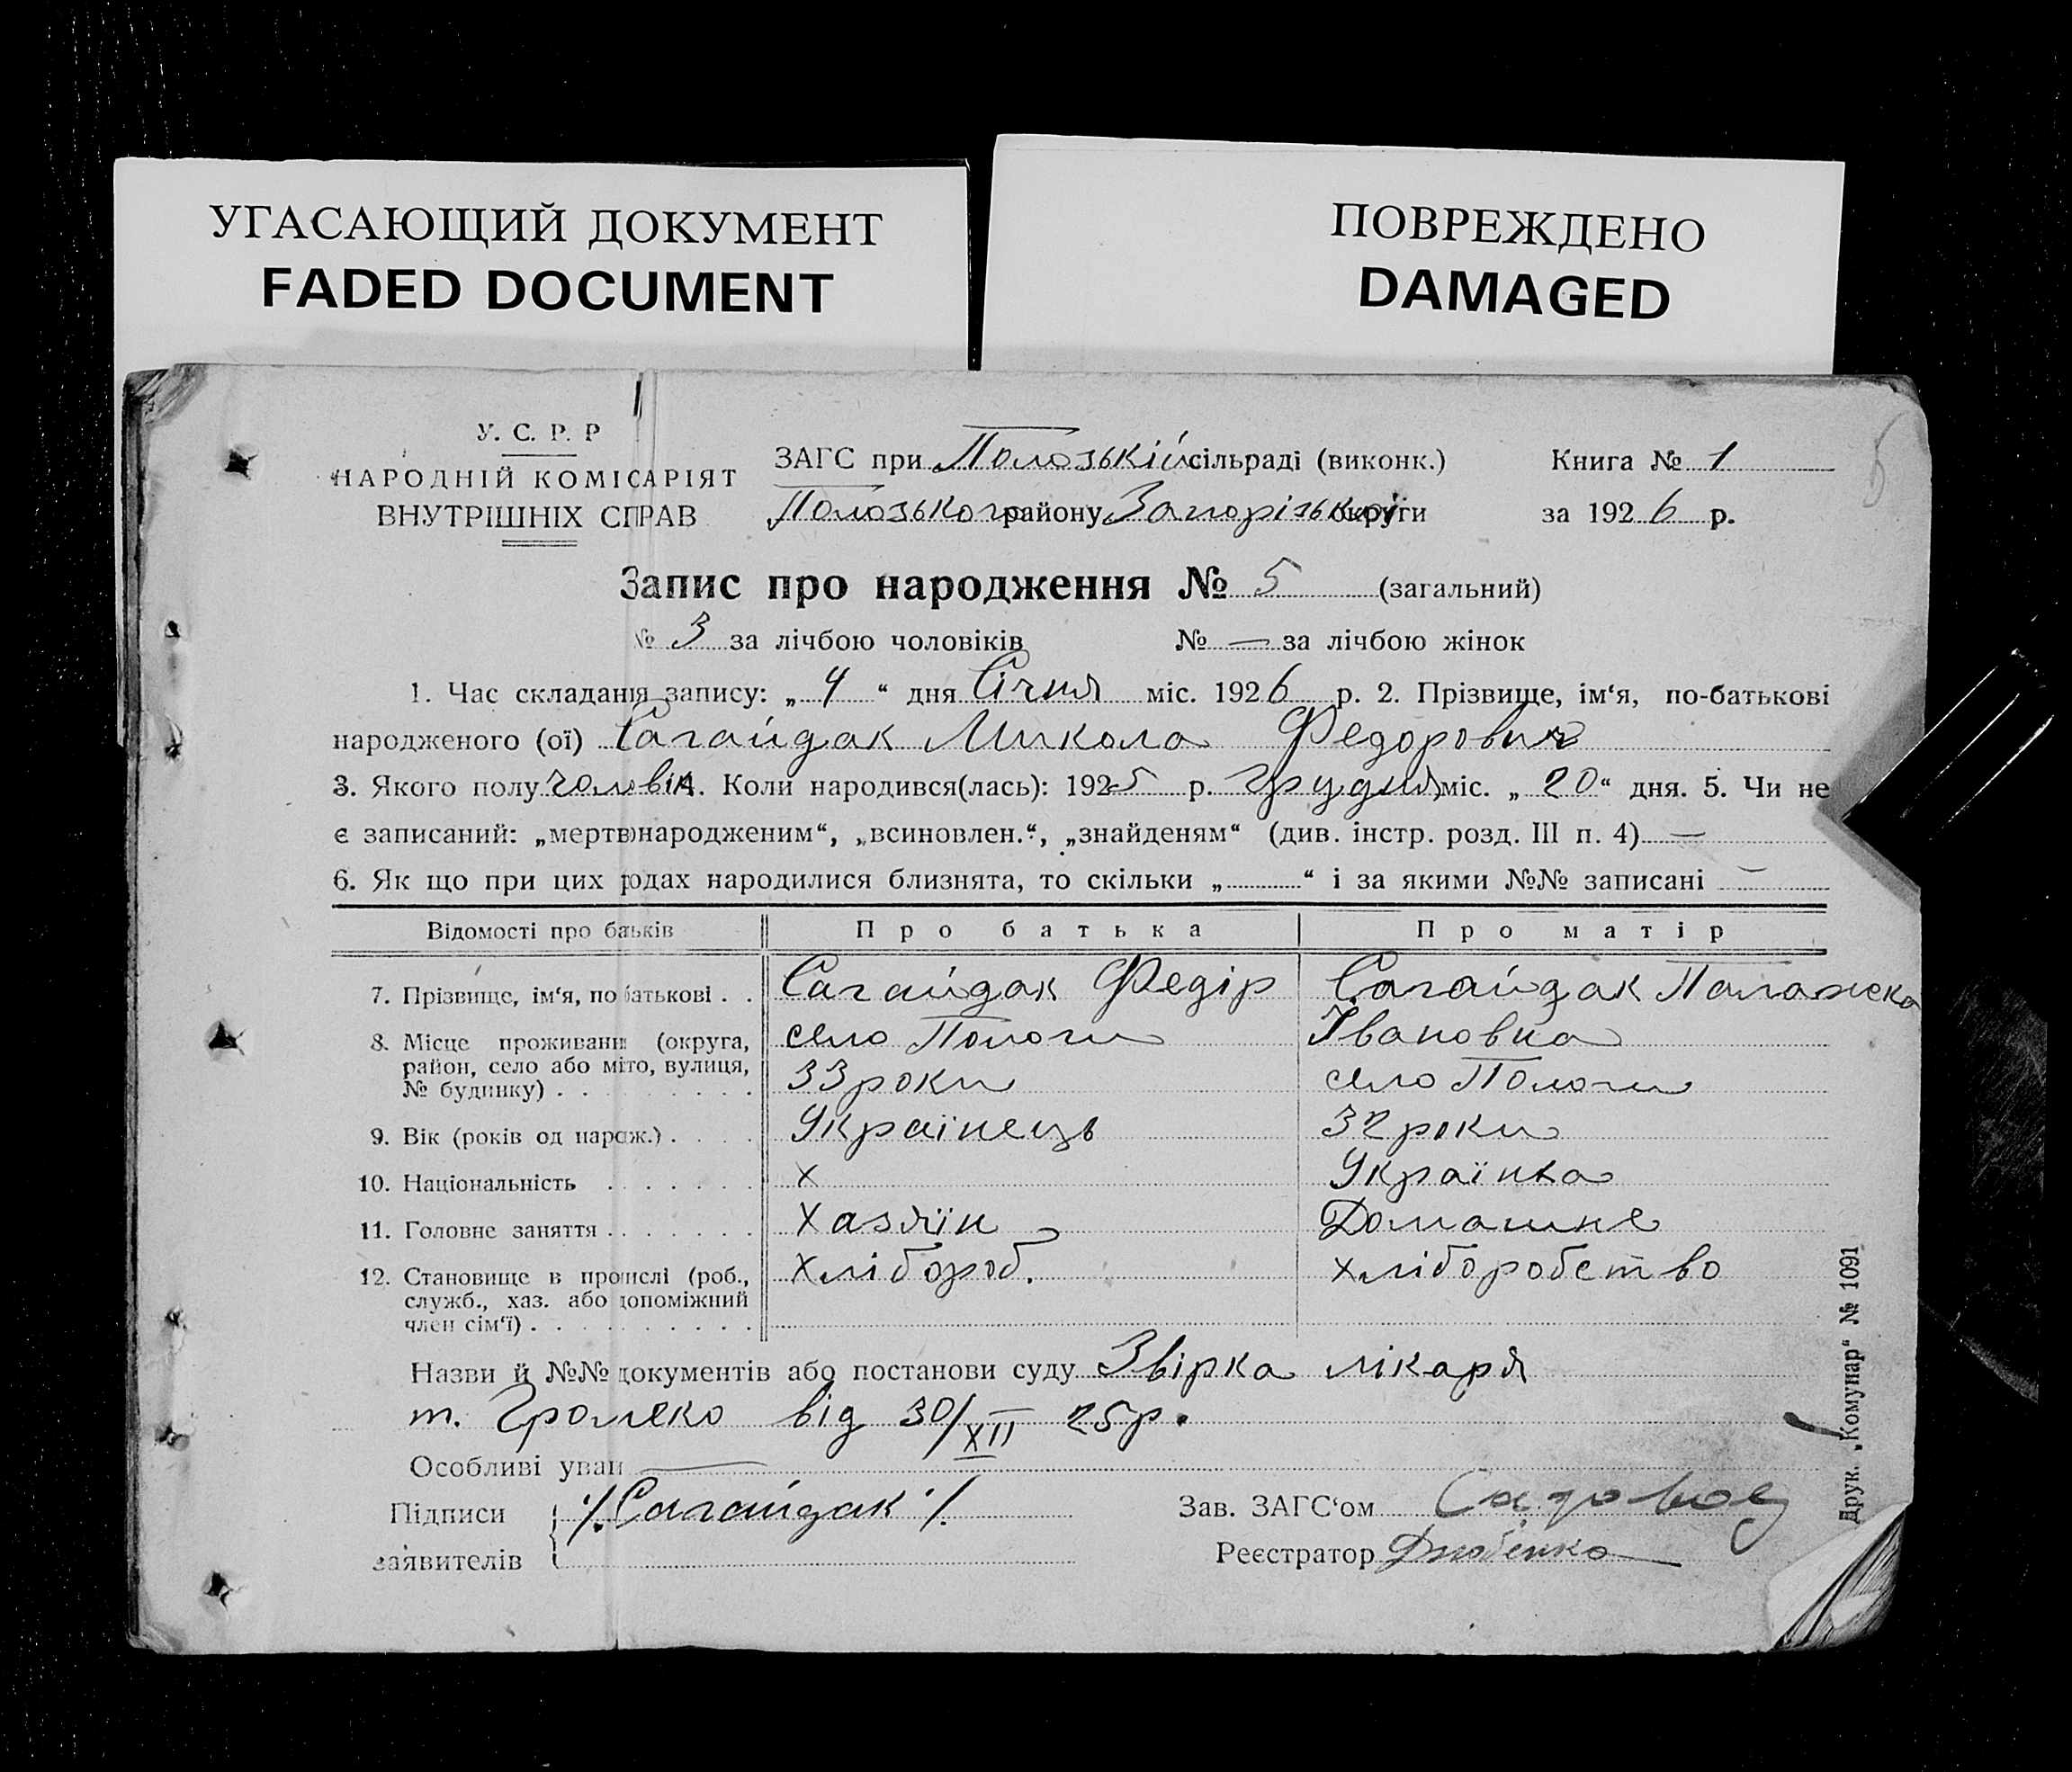 УГАСАЮЩИЙ ДОКУМЕНТ
FADED DOCUMENT
ПОВРЕЖДЕНО
DAMAGED
У. С. Р. Р
НАРОДНІЙ КОМІСАРІЯТ
ВНУТРІШНІХ СПРАВ
ЗАГС при Полозькій сільраді (виконк.)
Полозького району Запорізької округи
Книга № 1
за 1926 р.
5
Запис про народження № 5 (загальний)
№ 3 за лічбою чоловіків № — за лічбою жінок
1. Час складання запису: „ 4 “ дня Січня міс. 1926 р. 2. Прізвище, ім‘я, по-батькові
народженого (ої) Сагайдак Микола Федорович
3. Якого полу чоловік 4. Коли народився(лась): 1925 р. Грудня міс. „ 20 “ дня. 5. Чи не
є записаний: „мертвонародженим“, „всиновлен.“, „знайденям“ (див. інстр. розд. III п. 4) —
6. Як що при цих родах народилися близнята, то скільки „ “ і за якими №№ записані —
Відомості про батьків Про батька Про матір
7. Прізвище, ім‘я, по батькові . . Сагайдак Федір Сагайдак Палажка
8. Місце проживання (округа, село Пологи Івановна
район, село або місто, вулиця,
№ будинку) . . . . . . . . . 33 роки село Пологи
9. Вік (років од нарож.) . . . . Українець 32 роки
10. Національність . . . . . . . х Українка
11. Головне заняття . . . . . . . Хазяїн Домашнє
12. Становище в промислі (роб., хлібороб. хліборобство
служб., хаз. або допоміжний
член сім‘ї) . . . . . . . . . .
Назви й №№ документів або постанови суду Звірка лікаря
т. Громеко від 30/XII 25р.
Особливі уваги —
Підписи ·/. Сагайдак ·/.
заявителів
Зав. ЗАГС‘ом
Реєстратор
Друк. „Комунар“ № 1091